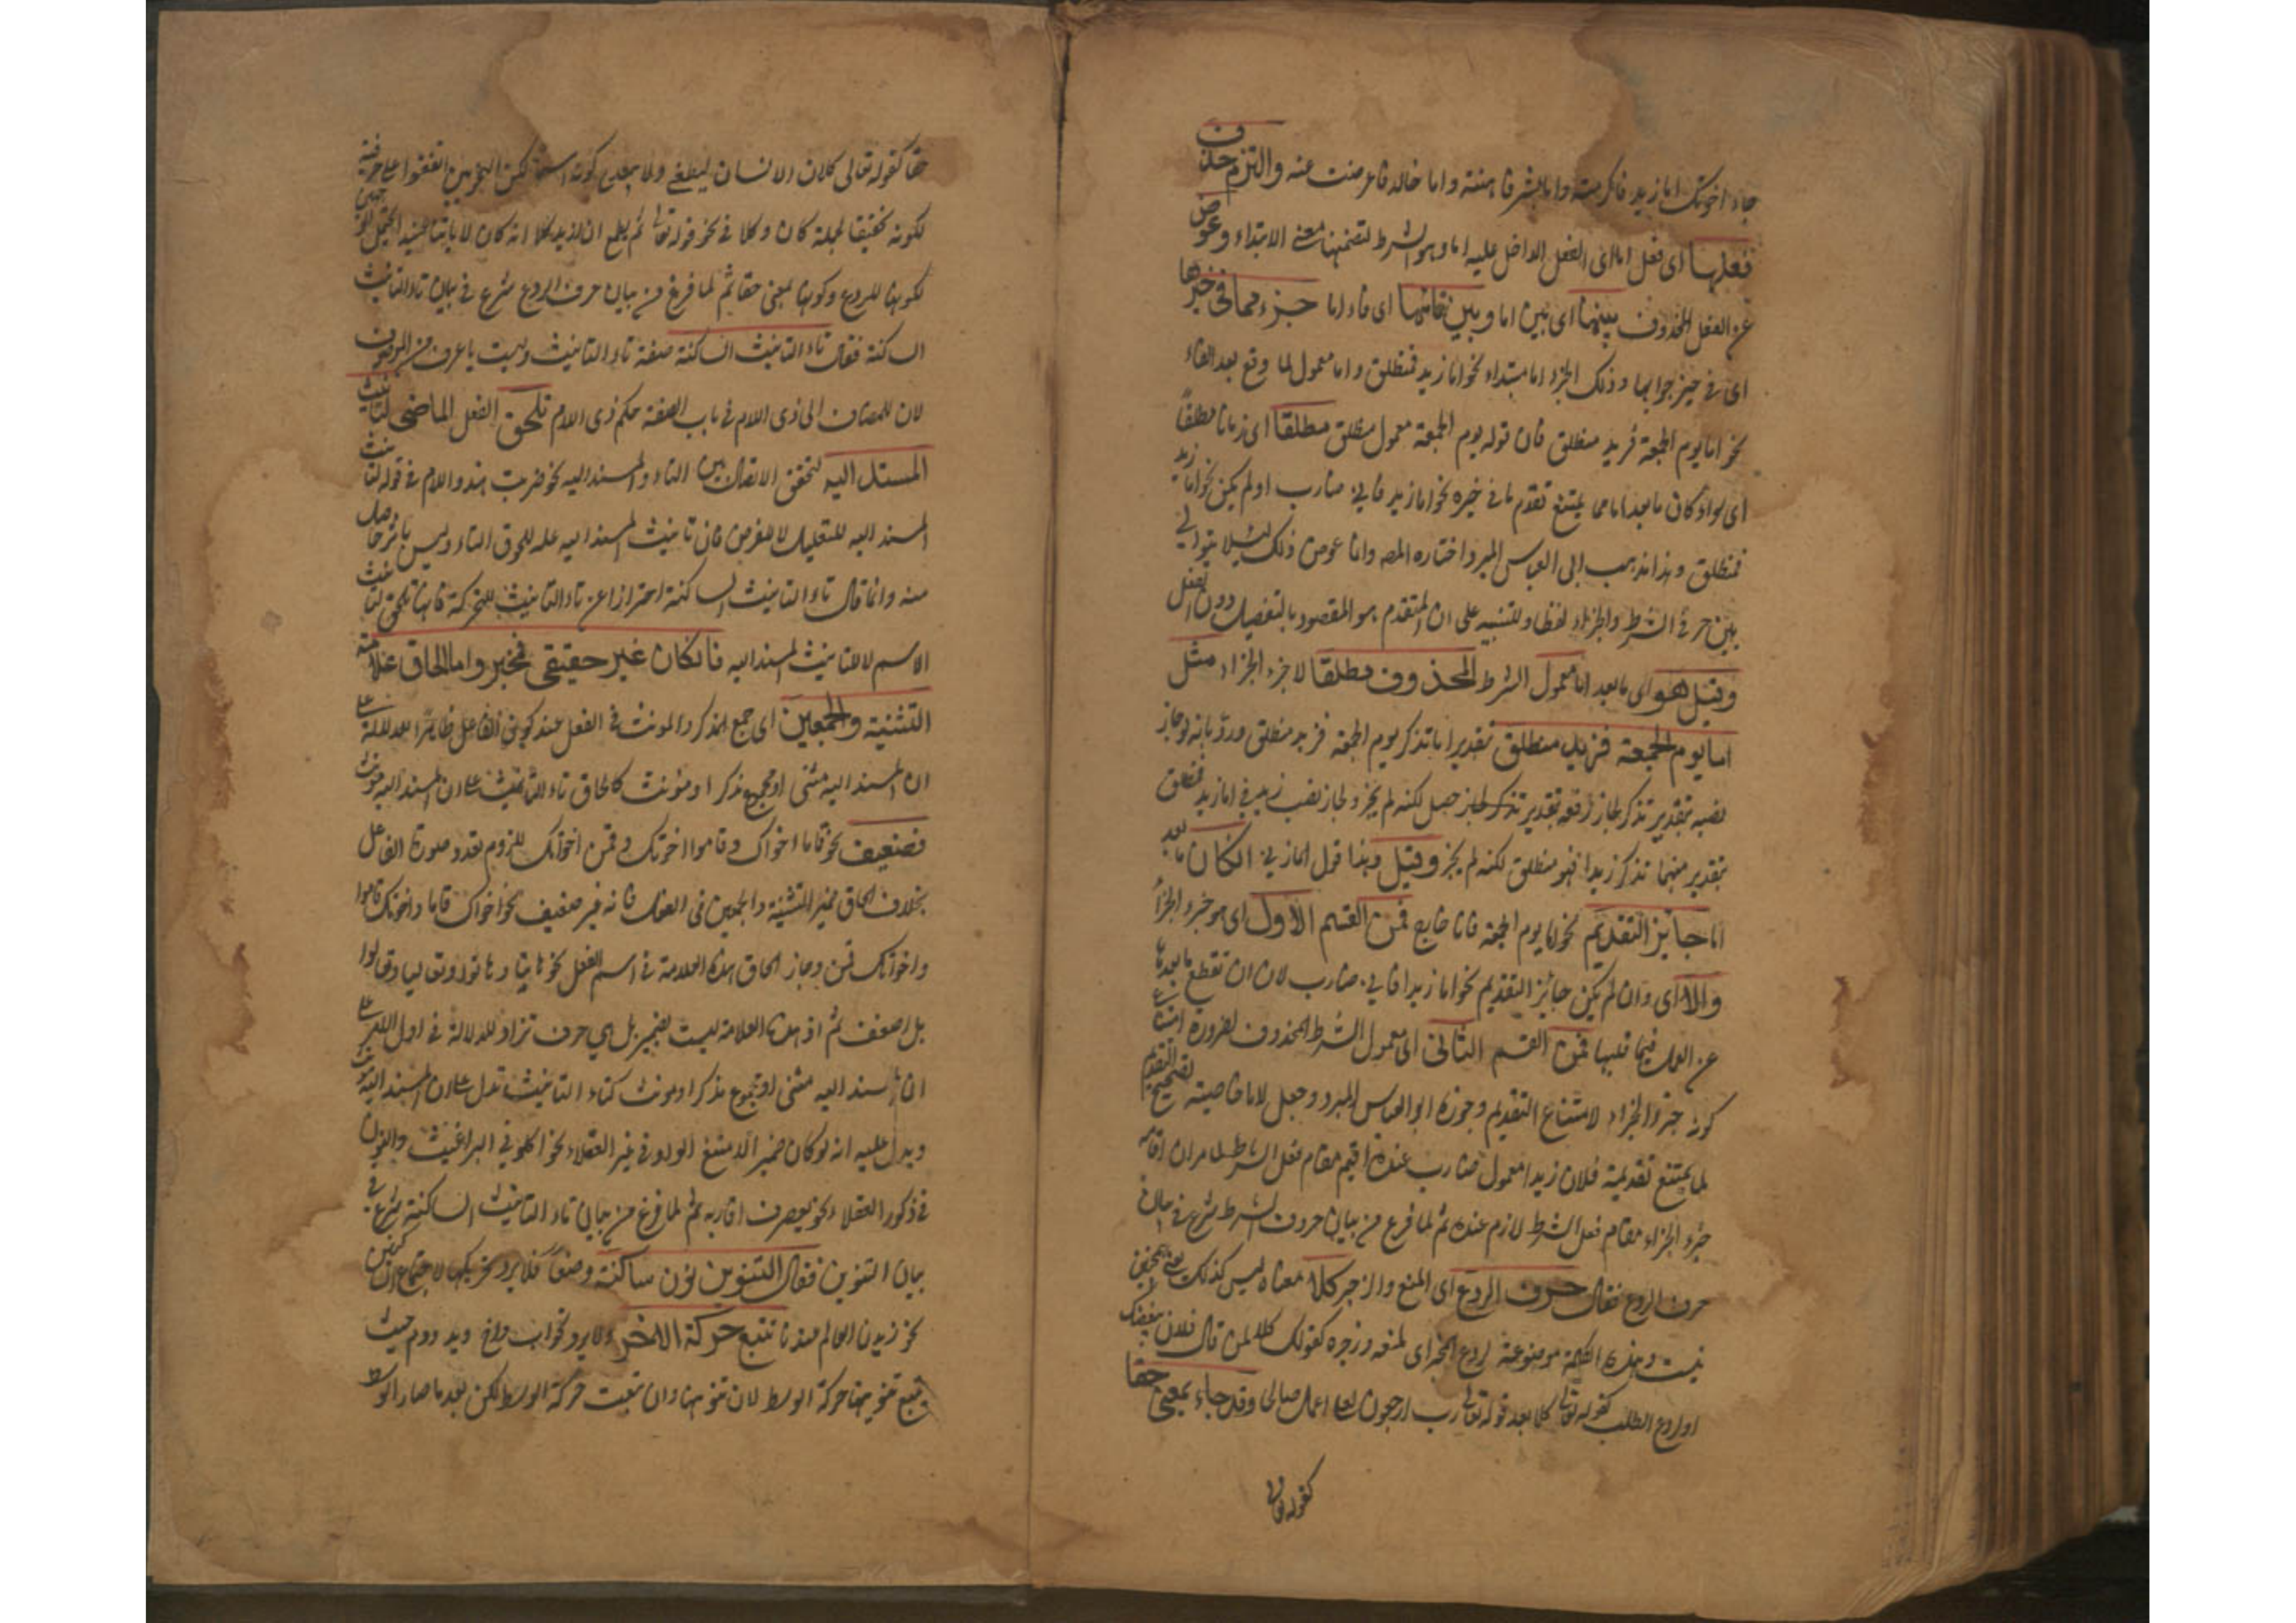 جاء اخوتك اما زيد فاكرمته واما بشر فاهنته واما خالد فاعرضت عنه والتزم حذف
فعلها اى فعل اما اى الفعل الداخل عليه اما وهو الشرط لتضمنها معنى الابتداء وعوض
عن الفعل المحذوف بينها اى بين اما وبين فائها اى فاء اما جزء مما فى خبرها
اى فى حيز جوابها وذلك الجزء اما مبتداء نحو اما زيد فمنطلق واما معمول لما وقع بعد الفاء
نحو اما يوم الجمعة فزيد منطلق فان قوله يوم الجمعة معمول منطلق مطلقا اى زمانا مطلقا
اى سواء كان ما بعد اما مما يمتنع تقدم ما فى خبره نحو اما زيد فانى ضارب اولم يكن نحو اما زيد
فمنطلق وهذا مذهب ابى العباس المبرد واختاره المصه وانما عوض ذلك لئلا يتوالى
بين حرفى الشرط والجزاء لفظا وللتنبيه على ان المتقدم هو المقصود بالتفصيل دون الفعل
وقيل هو اى ما بعد اما معمول الشرط المحذوف مطلقا لا جزء الجزاء مثل
اما يوم الجمعة فزيد منطلق تقدير اما تذكر يوم الجمعة فزيد منطلق ورد بانه لو جاز
نصبه بتقدير تذكر لجاز رفعه بتقدير تذكر لكنه لم يجز ولجاز نصب زيد فى اما زيد فمنطلق
بتقدير مهما تذكر زيدا فهو منطلق لكنه لم يجز وقيل وهذا قول المازنى ان كان ما بعد
اما جايز التقديم نحو اما يوم الجمعة فانا ضايع فمن القسم الاول اى هو جزء الجزاء
والا اى وان لم يكن جائز التقديم نحو اما زيدا فانى ضارب لان ان تقطع ما بعدها
عن العمل فيما قبلها فمن القسم الثانى اى معمول الشرط المحذوف لضرورة امتناع
كونه جزء الجزاء لامتناع التقديم وجوزه ابو العباس المبرد وجعل لاما خاصية تصحيح التقديم
لما يمتنع تقديمة فلان زيدا معمول ضارب عنده اقيم مقام فعل الشرط لما مر ان اقامه
جزء الجزاء مقام فعل الشرط لازم عنده ثم لما فرغ من بيان حروف الشرط شرع فى بيان
حرف الردع فقال حرف الردع اى المنع والزجر كلا معناه ليس كذلك
وهذه الكلمة موضوعة لردع المخبر اى لمنعه وزجره كقولك كلا لمن قال فلان يبغضك
او لردع الطلب كقوله تعالى كلا بعد قوله تعالى رب ارجعون لعلى اعمل صالحا وقد جاء بمعنى حقا
كقوله تعالى
حقا كقوله تعالى كلا ان الانسان ليطغى ولا يبعد كونه اسما لكن النحويين اتفقوا على حرفيته
لكونه تحقيقا لجملة كان وكلا فى نحو قوله تعالى ثم يطمع ان ازيد كلا انه كان لاياتنا عنيدا
لكونها للردع وكونها بمعنى حقا ثم لما فرغ من بيان حرف الردع شرع فى بيان تاء التانيث
الساكنة فقال تاء التانيث الساكنة صفة تاء التانيث وليست باعرف من الموصوف
لان للمضاف الى ذى اللام فى باب الصفة حكم ذى اللام تلحق الفعل الماضى لتانيث
المسند اليه لتحقق الاتصال بين التاء والمسند اليه نحو ضربت هند واللام فى قوله لتانيث
المسند اليه للتعليل لا للغرض فان تانيث المسند اليه علة للحوق التاء وليس
منه وانما قال تاء التانيث الساكنة احترازا عن تاء التانيث المتحركة فانها تلحق لتانيث
الاسم لا لتانيث المسند اليه فان كان غير حقيقى فمخير واما الحاق علامة
التثنية والجمعين اى جمع المذكر والمونث فى الفعل عند كون الفاعل ظاهرا للدلالة على
ان المسند اليه مثنى او مجموع مذكرا او مؤنث كالحاق تاء التانيث على ان المسند اليه مونث
فضعيف نحو قاما اخواك وقاموا اخوتك وقمن اخواتك للزوم تعدد صورة الفاعل
بخلاف الحاق ضمير التثنية والجمعين فى الفعل فانه غير ضعيف نحو اخواك قاما واخوتك قاموا
واخواتك قمن وجاز الحاق هذه العلامة فى اسم الفعل نحو هاتيا وهاتوا وتعاليا وتعالوا
بل اضعف ثم ان هذه العلامة ليست بضمير بل هى حرف تزاد للدلالة فى اول الامر على
ان المسند اليه مثنى او مجموع مذكرا او مونث كتاء التانيث تدل على ان المسند اليه مونث
ويدل عليه انه لو كان ضميرا لامتنع الواو فى غير العقلاء نحو اكلونى البراغيث والنون
فى ذكور العقلاء نحو يعصرن اقاربه ثم لما فرغ من بيان تاء التانيث الساكنة شرع فى
بيان التنوين فقال التنوين نون ساكنة وضعا فلا يرد تحريكها لاجتماع الساكنين
نحو زيدن العالم عندنا تتبع حركة الاخر ولا يرد نحو اب واخ ويد ودم حيث
تتبع تنوينها حركة الوسط لان تنوينها وان تبعت حركة الوسط لكن بعد ما صار الوسط